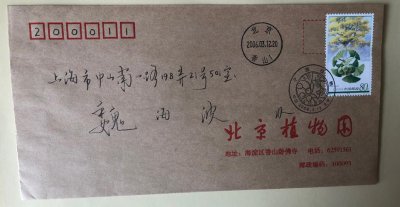 200011
北京
2006.03.12.20
香山1
上海市中山南一路198弄21号501室
魏雨波
80
北京植物园
地址：海淀区香山卧佛寺 电话：62591561
邮政编码：100093